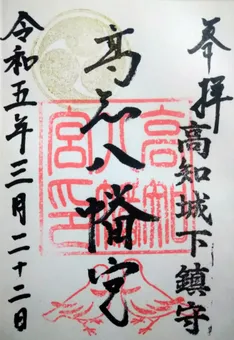 奉拝
高知城下鎮守
高知八幡宮
高知八幡宮印
令和五年三月二十二日